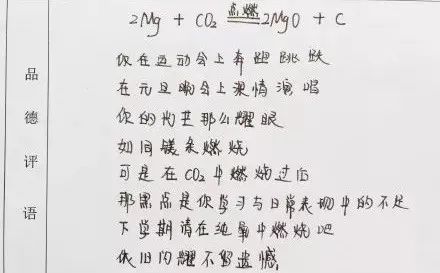 2Mg + CO₂ 点燃 2MgO + C
品德评语
你在运动会上奔跑跳跃
在元旦晚会上深情演唱
你的光芒那么耀眼
如同镁条燃烧
可是在CO₂中燃烧过后
那黑点是你学习与日常表现中的不足
下学期请在纯氧中燃烧吧
依旧闪耀不留遗憾。